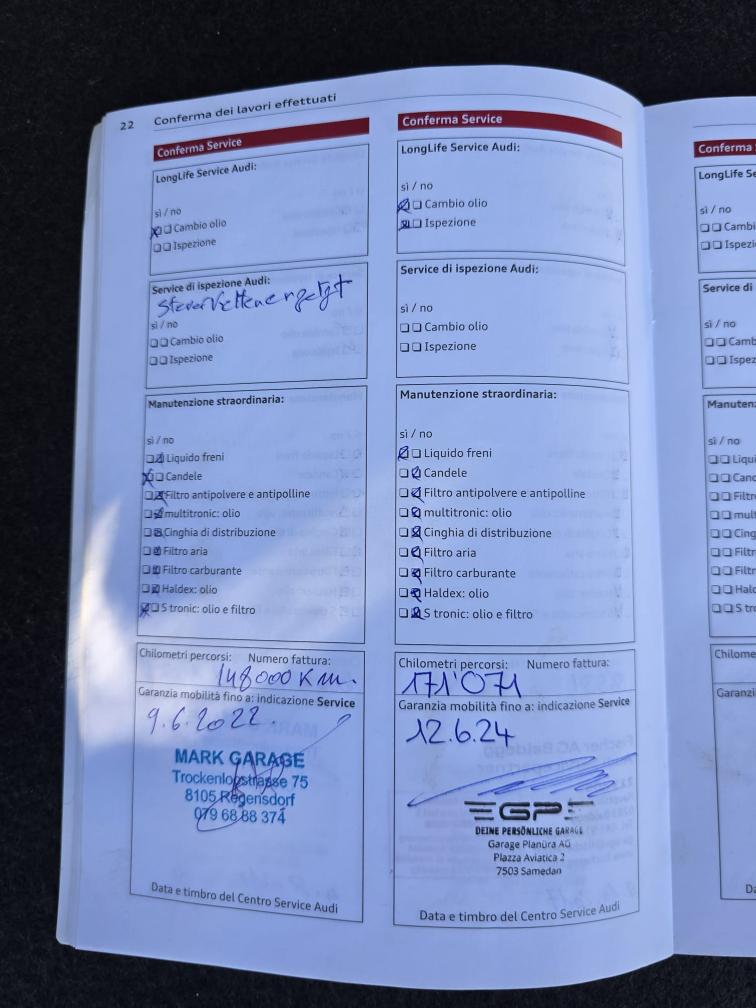 22 Conferma dei lavori effettuati
Conferma Service
LongLife Service Audi:
sì / no
Cambio olio
Ispezione
Service di ispezione Audi:
sì / no
Cambio olio
Ispezione
Manutenzione straordinaria:
sì / no
Liquido freni
Candele
Filtro antipolvere e antipolline
multitronic: olio
Cinghia di distribuzione
Filtro aria
Filtro carburante
Haldex: olio
S tronic: olio e filtro
Chilometri percorsi: Numero fattura:
148000 Km.
Garanzia mobilità fino a: indicazione Service
9.6.2022.
MARK GARAGE
Trockenloostrasse 75
8105 Regensdorf
079 68 88 374
Data e timbro del Centro Service Audi
Conferma Service
LongLife Service Audi:
sì / no
Cambio olio
Ispezione
Service di ispezione Audi:
sì / no
Cambio olio
Ispezione
Manutenzione straordinaria:
sì / no
Liquido freni
Candele
Filtro antipolvere e antipolline
multitronic: olio
Cinghia di distribuzione
Filtro aria
Filtro carburante
Haldex: olio
S tronic: olio e filtro
Chilometri percorsi: Numero fattura:
171'071
Garanzia mobilità fino a: indicazione Service
12.6.24
GP
DEINE PERSÖNLICHE GARAGE
Garage Planüra AG
Plazza Aviatica 2
7503 Samedan
Data e timbro del Centro Service Audi
Conferma
LongLife Se
sì / no
Cambi
Ispezi
Service di
sì / no
Camb
Ispez
Manuten
sì / no
Liqui
Cand
Filtr
mul
Cing
Filtr
Filtr
Hald
S tr
Chilome
Garanzi
Da